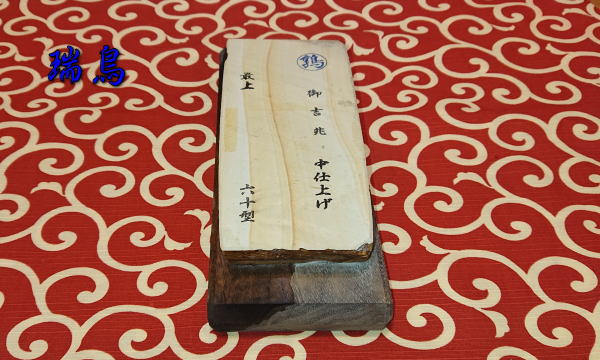 瑞鳥
御吉兆 中仕上げ
最上 六十型